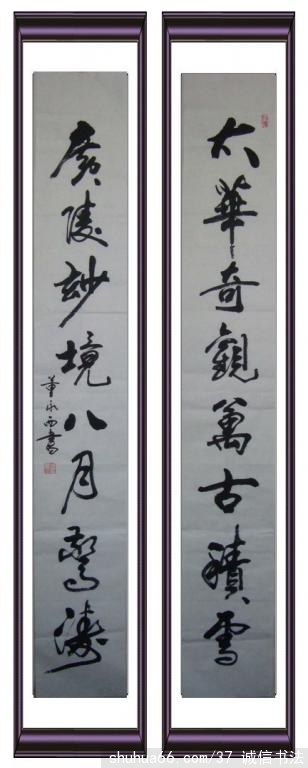 太華奇觀萬古積雪
廣陵妙境八月驚濤
董永西書
shuhua66.com/37 诚信书法